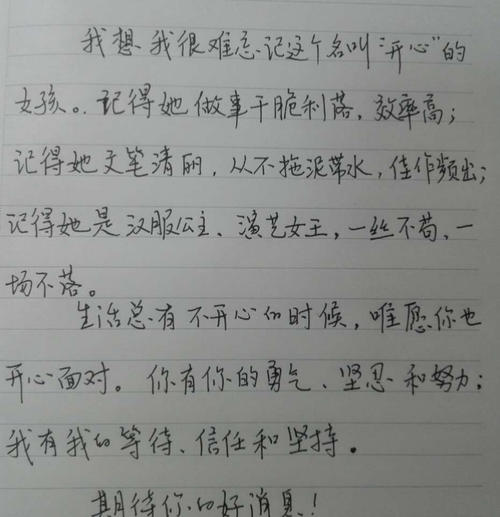 我想我很难忘记这个名叫“开心”的
女孩。记得她做事干脆利落，效率高；
记得她文笔清丽，从不拖泥带水，佳作频出；
记得她是汉服公主、演艺女王，一丝不苟，一
场不落。
生活总有不开心的时候，唯愿你也
开心面对。你有你的勇气、坚忍和努力；
我有我的等待、信任和坚持。
期待你的好消息！